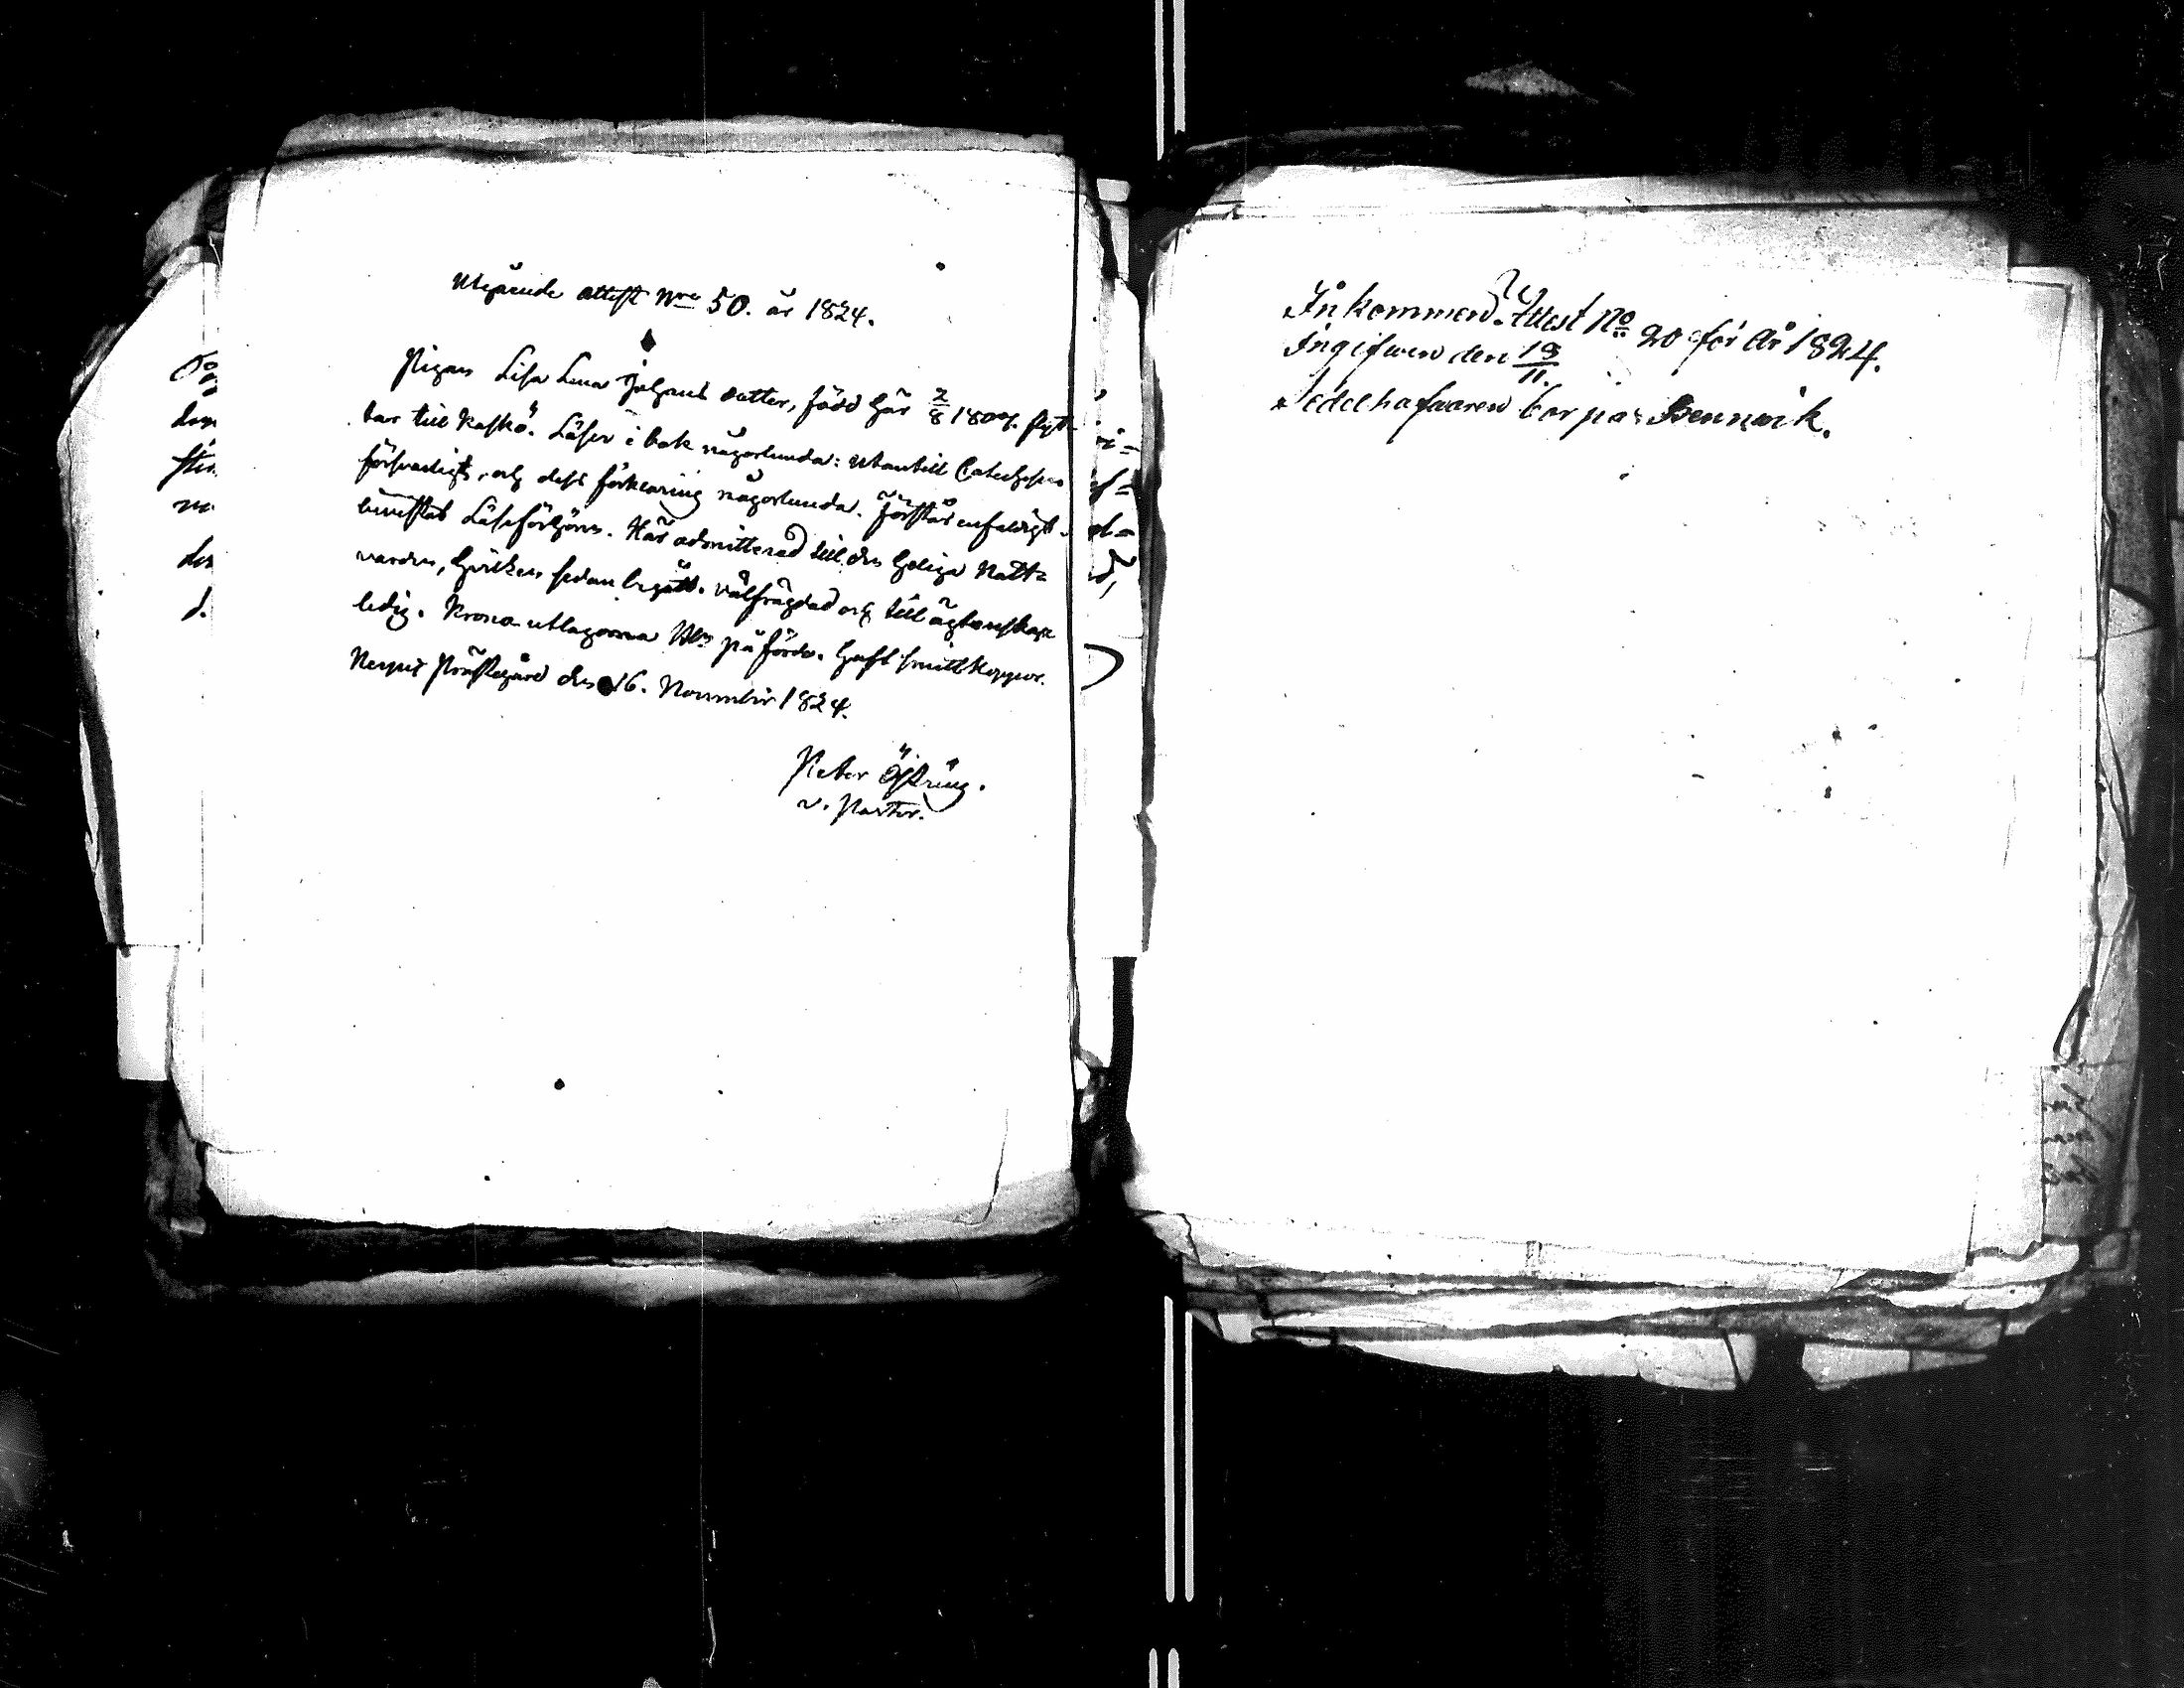 Utgående attest Nro 50. år 1824.
Pigan Lisa Lena Johans dotter, född här 2/8 1804. flyt-
tar till Kaskö. Läser i bok någorlunda: utantill Catechesen
försvarligt, och dess förklaring någorlunda. Förstår enfaldigt.
bivistat Läseförhören. Här admitterad till den heliga Natt=
varden, hvilken sedan begått. välfrägdad och till ägtenskap
ledig. Krono utlagorna påförde. haft smittkoppor.
Nerpes Prästegård den 16. November 1824.
Peter
v. Pastor.
Inkommen Attest No 20 för År 1824.
Ingifwen den 19/11.
Sedelhafwaren bor på Bennvik.